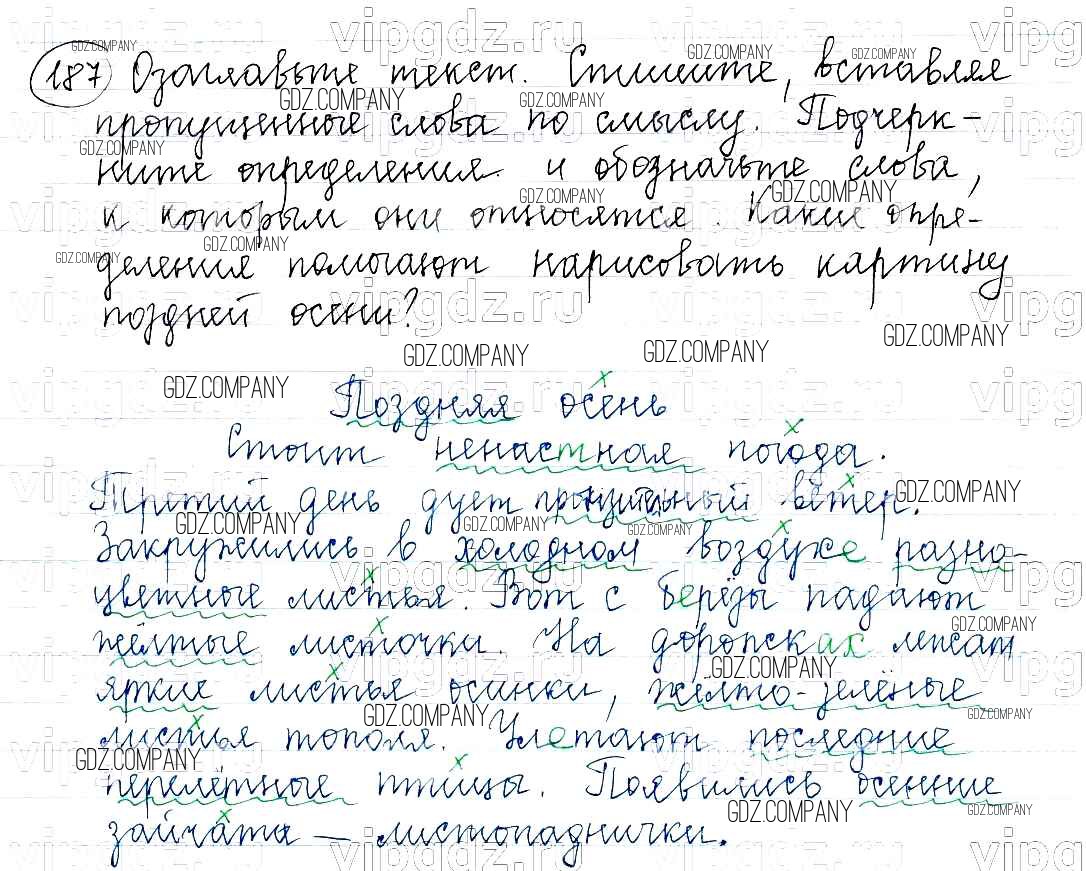 187 Озаглавьте текст. Спишите, вставляя
пропущенные слова по смыслу. Подчерк-
ните определения и обозначьте слова,
к которым они относятся. Какие опре-
деления помогают нарисовать картину
поздней осени?
Поздняя осень
Стоит ненастная погода.
Третий день дует пронзительный ветер.
Закружились в холодном воздухе разно-
цветные листья. Вот с берёзы падают
жёлтые листочки. На дорожках лежат
яркие листья осинки, жёлто-зелёные
листья тополя. Улетают последние
перелётные птицы. Появились осенние
зайчата – листопаднички.